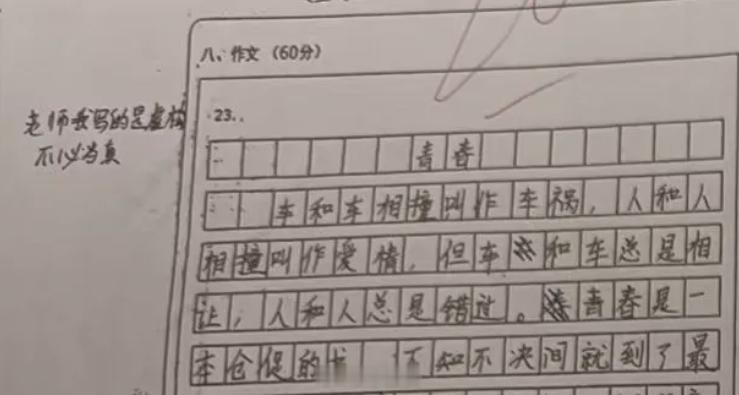 八、作文（60分）
老师我写的是虚构
不必当真
23.
青春
车和车相撞叫作车祸，人和人
相撞叫作爱情，但车和车总是相
让，人和人总是错过。青春是一
本仓促的书 不知不决间就到了最